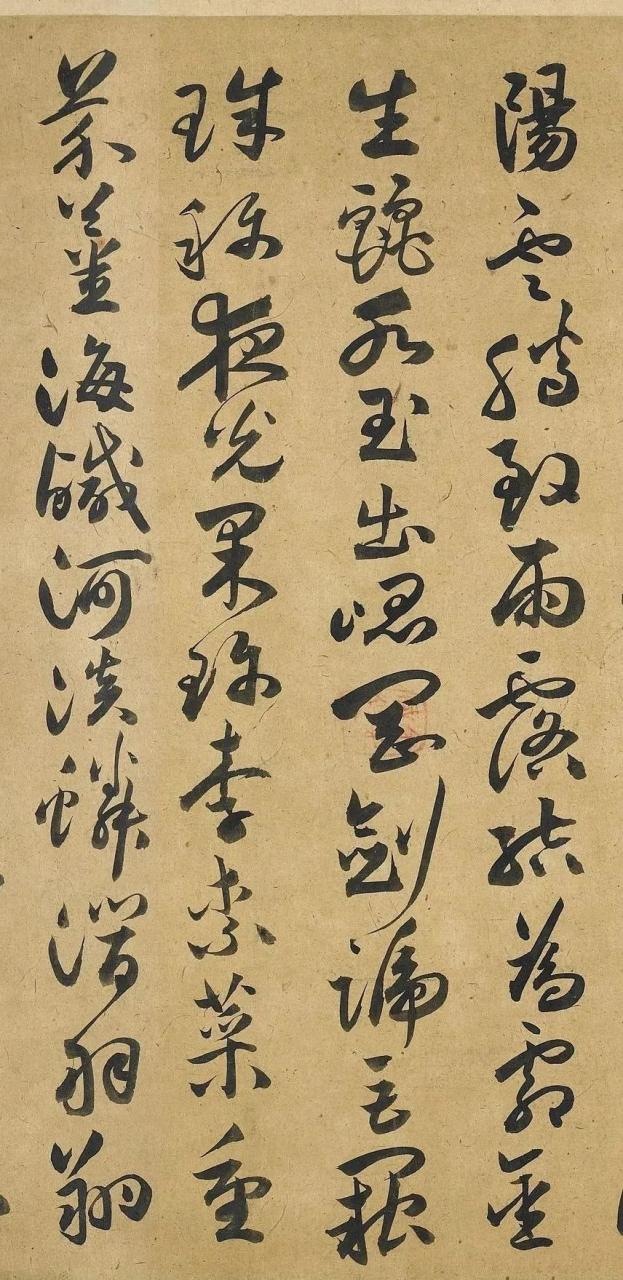 陽雲騰致雨露結為霜金
生麗水玉出崐岡劍號巨闕
珠稱夜光果珍李柰菜重
芥薑海鹹河淡鱗潛羽翔